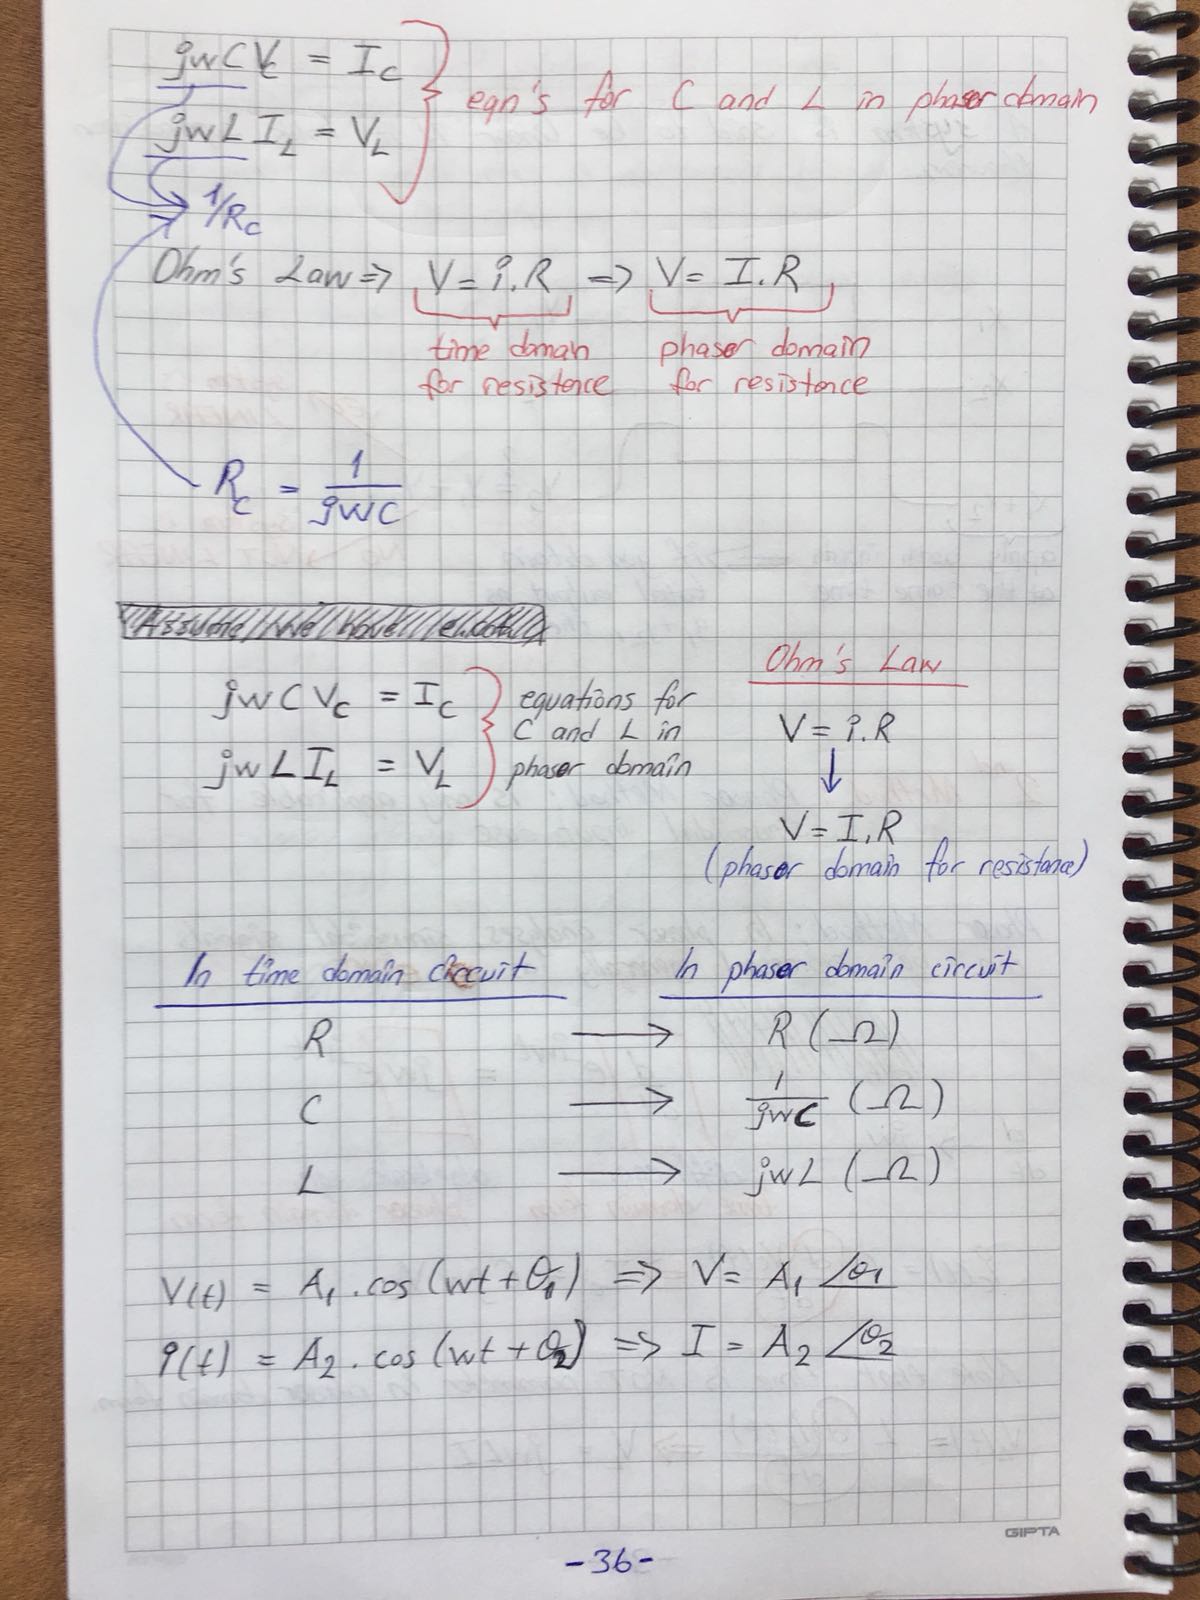 jwCVc = Ic
eqn's for C and L in phaser domain
jwLI_L = V_L
1/Rc
Ohm's Law => V = i.R => V = I.R
time doman phaser domain
for resistence for resistence
Rc = 1/jwC
jwCVc = Ic equations for
C and L in
jwLI_L = V_L phaser domain
Ohm's Law
V = i.R
↓
V = I.R
(phaser domain for resistance)
In time domain circuit In phaser domain circuit
R → R (Ω)
C → 1/jwC (Ω)
L → jwL (Ω)
V(t) = A₁.cos(wt+θ₁) => V = A₁ ∠θ₁
i(t) = A₂.cos(wt+θ₂) => I = A₂ ∠θ₂
GIPTA
-36-